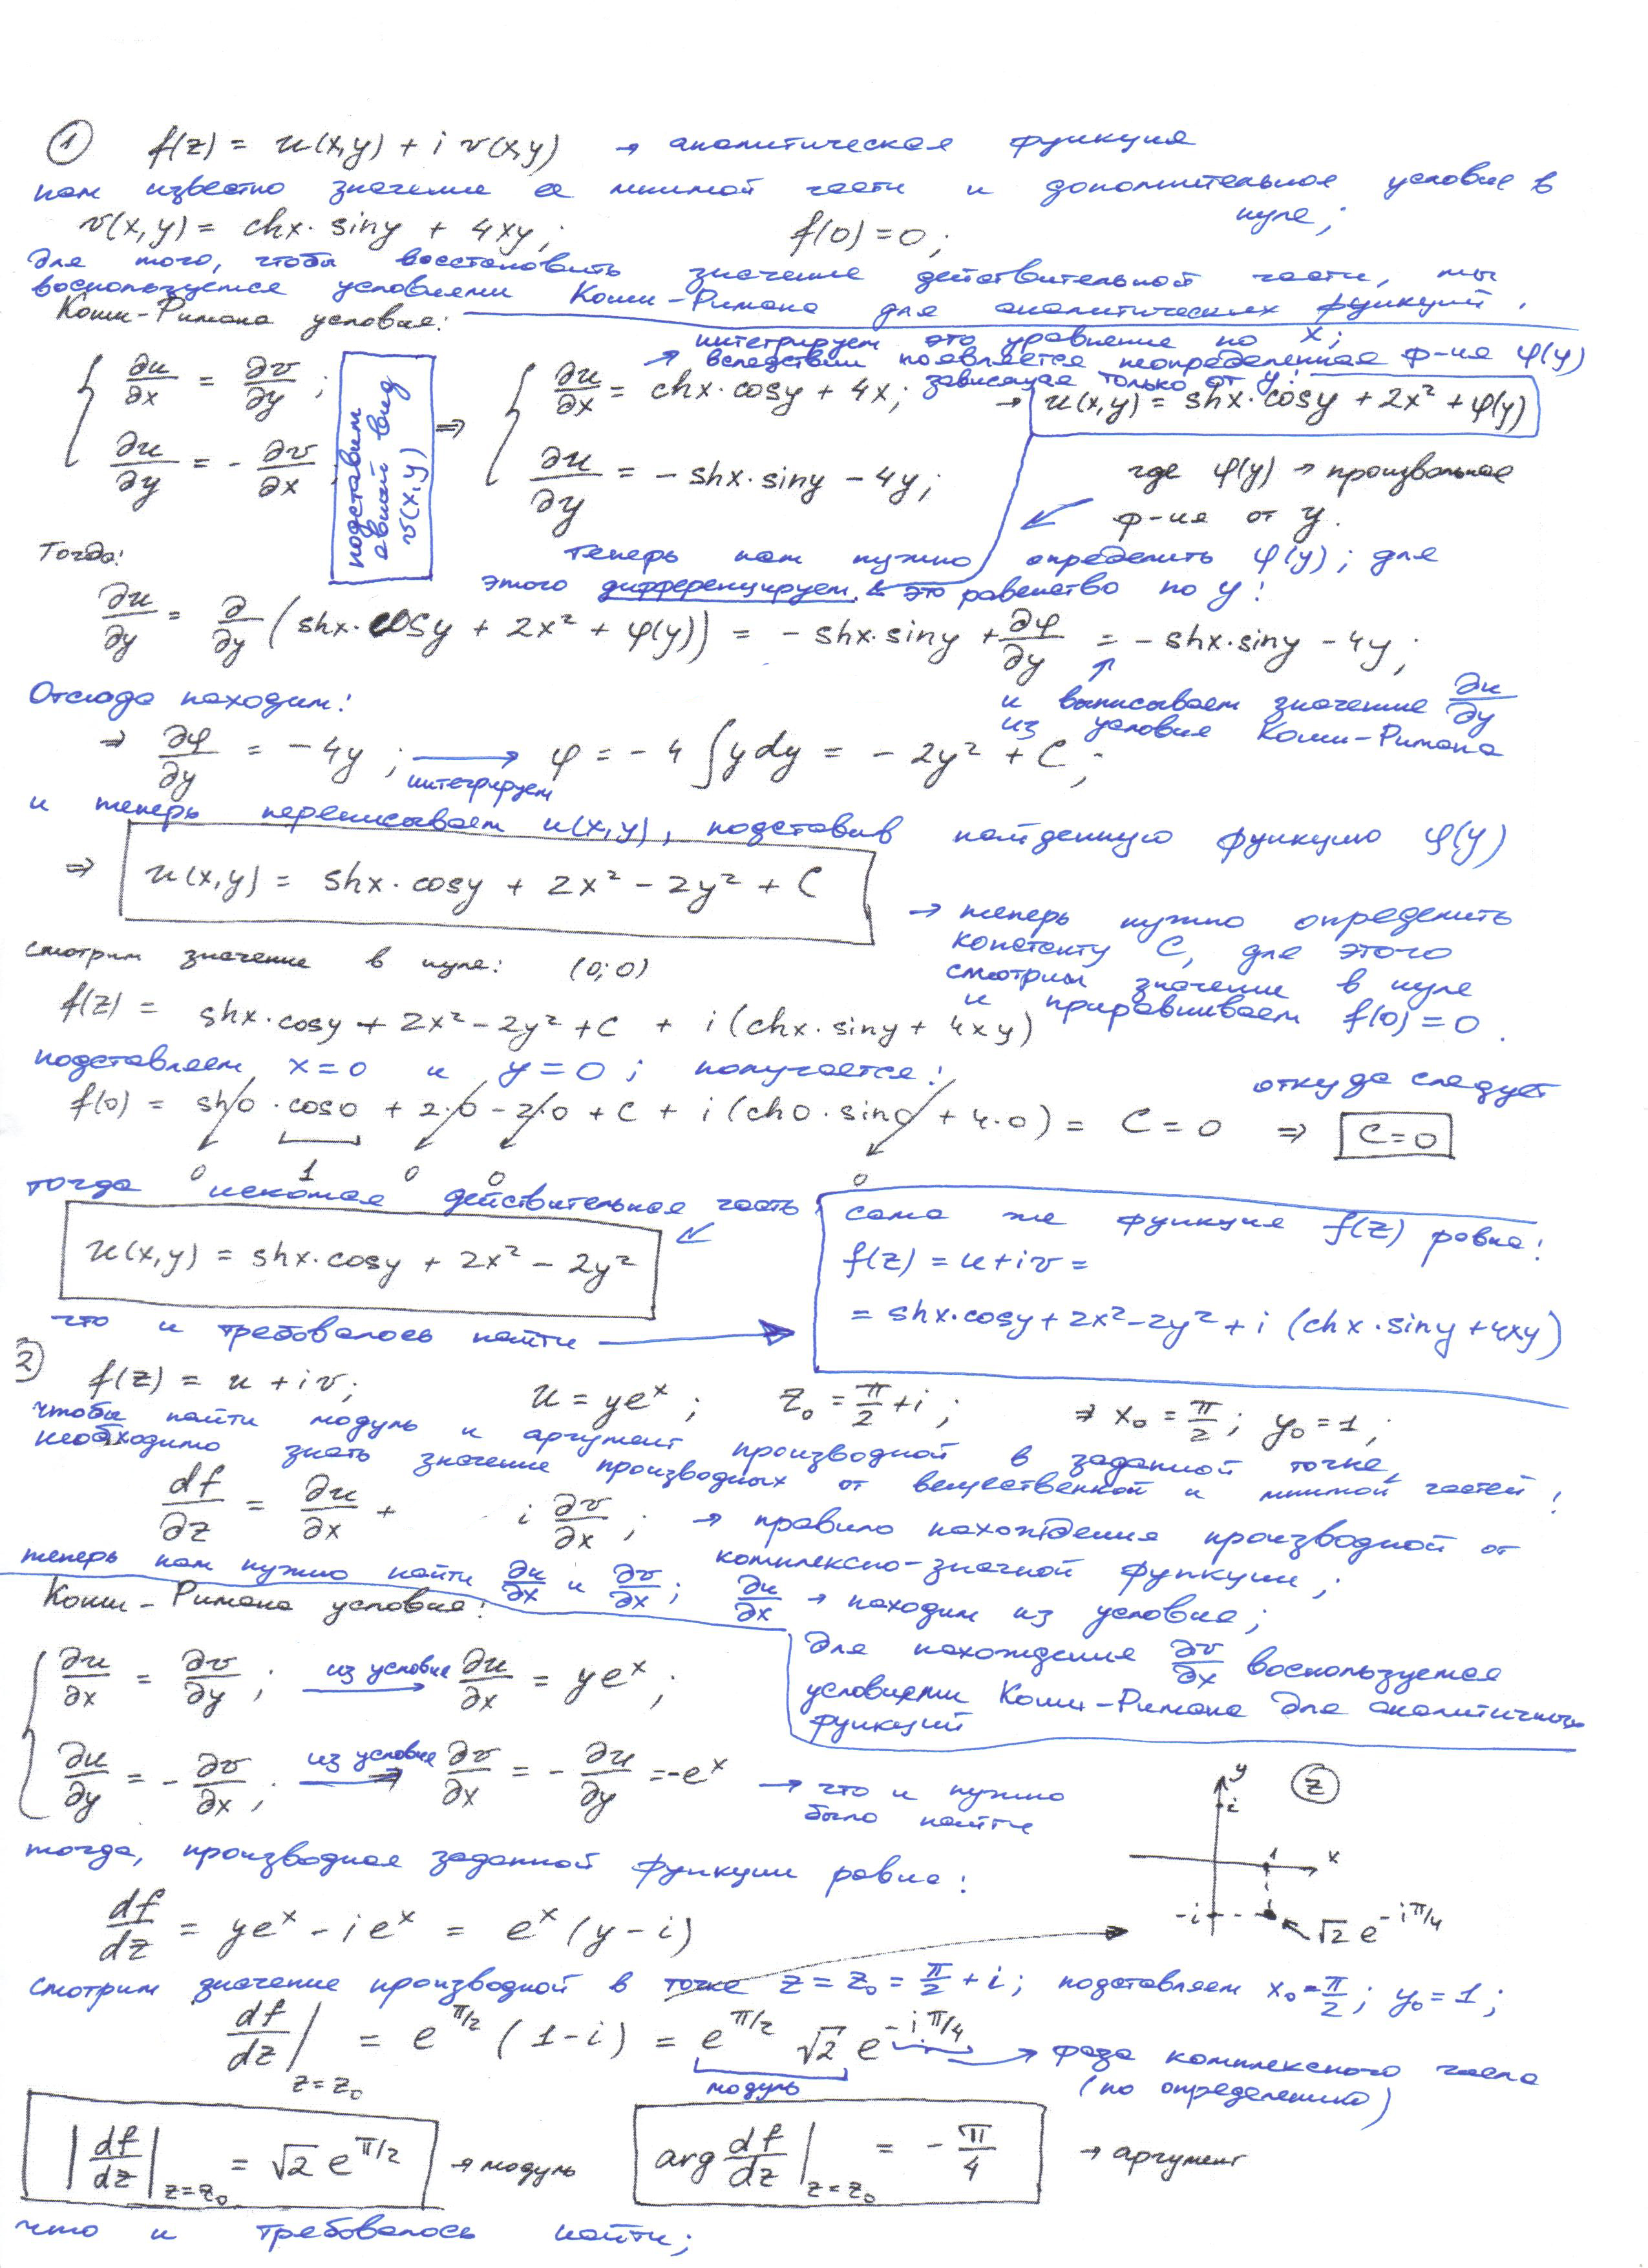 ① f(z) = u(x,y) + i v(x,y) → аналитическая функция
нам известно значение ее мнимой части и дополнительное условие в нуле;
v(x,y) = chx·siny + 4xy; f(0)=0;
Для того, чтобы восстановить значение действительной части, мы
воспользуемся условиями Коши-Римана для аналитических функций.
Коши-Римана условия:
интегрируем это уравнение по x;
вследствии появляется неопределенная ф-ия φ(y)
зависящая только от y!
∂u/∂x = ∂v/∂y; ⇒ ∂u/∂x = chx·cosy + 4x; → u(x,y) = shx·cosy + 2x² + φ(y)
подставим явный вид v(x,y)
∂u/∂y = - ∂v/∂x; ∂u/∂y = - shx·siny - 4y;
где φ(y) → произвольная
ф-ия от y.
Тогда:
теперь нам нужно определить φ(y); для
этого дифференцируем это равенство по y!
∂u/∂y = ∂/∂y (shx·cosy + 2x² + φ(y)) = - shx·siny + ∂φ/∂y = - shx·siny - 4y;
Отсюда находим!
и выписываем значение ∂u/∂y
из условия Коши-Римана
⇒ ∂φ/∂y = - 4y; → интегрируем φ = - 4 ∫ y dy = - 2y² + C;
и теперь переписываем u(x,y), подставив найденную функцию φ(y)
⇒ u(x,y) = shx·cosy + 2x² - 2y² + C
→ теперь нужно определить
константу C, для этого
смотрим значение в нуле
и приравниваем f(0)=0.
смотрим значение в нуле: (0;0)
f(z) = shx·cosy + 2x² - 2y² + C + i(chx·siny + 4xy)
подставляем x=0 и y=0; получается!
откуда следует
f(0) = sh0·cos0 + 2·0 - 2·0 + C + i(ch0·sin0 + 4·0) = C = 0 ⇒ C=0
0 1 0 0 0
тогда искомая действительная часть
u(x,y) = shx·cosy + 2x² - 2y²
что и требовалось найти
сама же функция f(z) равна:
f(z) = u+iv =
= shx·cosy + 2x² - 2y² + i (chx·siny + 4xy)
2) f(z) = u + iv; u = ye^x; z₀ = π/2 + i; ⇒ x₀ = π/2; y₀ = 1;
чтобы найти модуль и аргумент производной в заданной точке,
необходимо знать значение производных от вещественной и мнимой частей!
df/∂z = ∂u/∂x + i ∂v/∂x; → правило нахождения производной от
комплексно-значной функции;
теперь нам нужно найти ∂u/∂x и ∂v/∂x; ∂u/∂x → находим из условия;
Коши-Римана условия:
Для нахождения ∂v/∂x воспользуемся
условиями Коши-Римана для аналитичных
функций
∂u/∂x = ∂v/∂y; из условия → ∂u/∂x = ye^x;
∂u/∂y = - ∂v/∂x; из условия ⇒ ∂v/∂x = - ∂u/∂y = -e^x → что и нужно
было найти
y i z x 1 -i √2 e^(-iπ/4)
тогда, производная заданной функции равна:
df/dz = ye^x - ie^x = e^x (y - i)
смотрим значение производной в точке z = z₀ = π/2 + i; подставляем x₀ = π/2; y₀ = 1;
df/dz |z=z₀ = e^(π/2) (1-i) = e^(π/2) √2 e^(-iπ/4) → фаза комплексного числа
модуль (по определению)
|df/dz| z=z₀ = √2 e^(π/2) → модуль arg df/dz |z=z₀ = - π/4 → аргумент
что и требовалось найти;